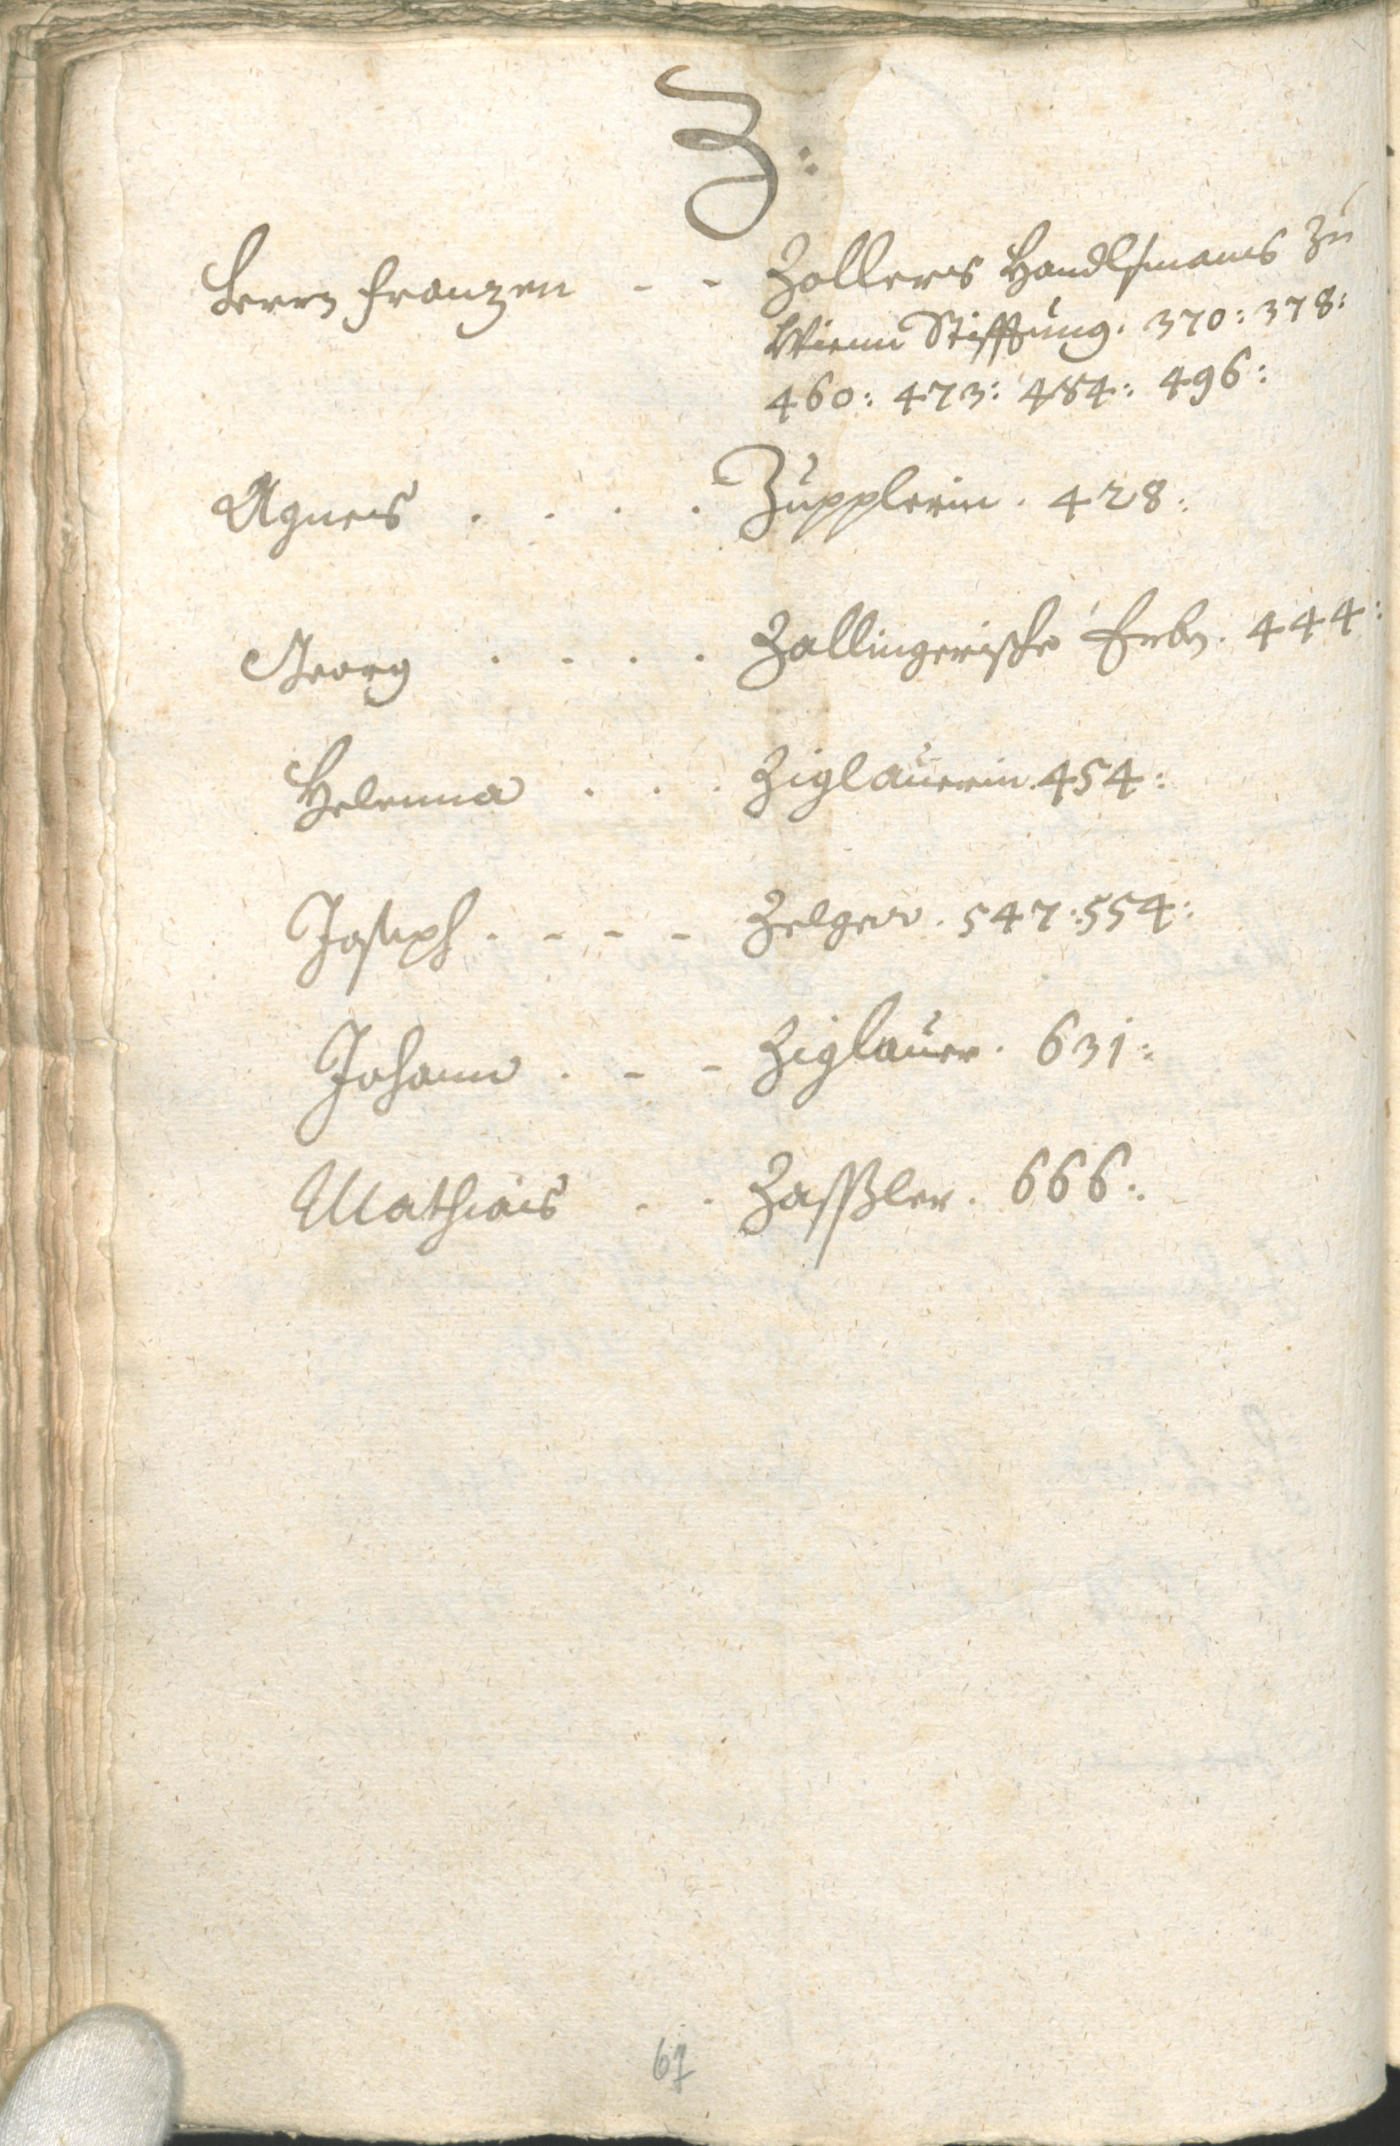 Z:
Herrn Franzen - - Zollers Handlsmans zu
Wienn Stifftung. 370: 378:
460: 473: 484: 496:
Agnes . . . . Zupplerin. 428:
Georg . . . . Zallingerische Erbn. 444:
Helenna . . . Ziglauerin. 454:
Joseph . - - - Zelger. 547: 554:
Johann . - - Ziglauer. 631:
Mathias . . Zassler. 666: